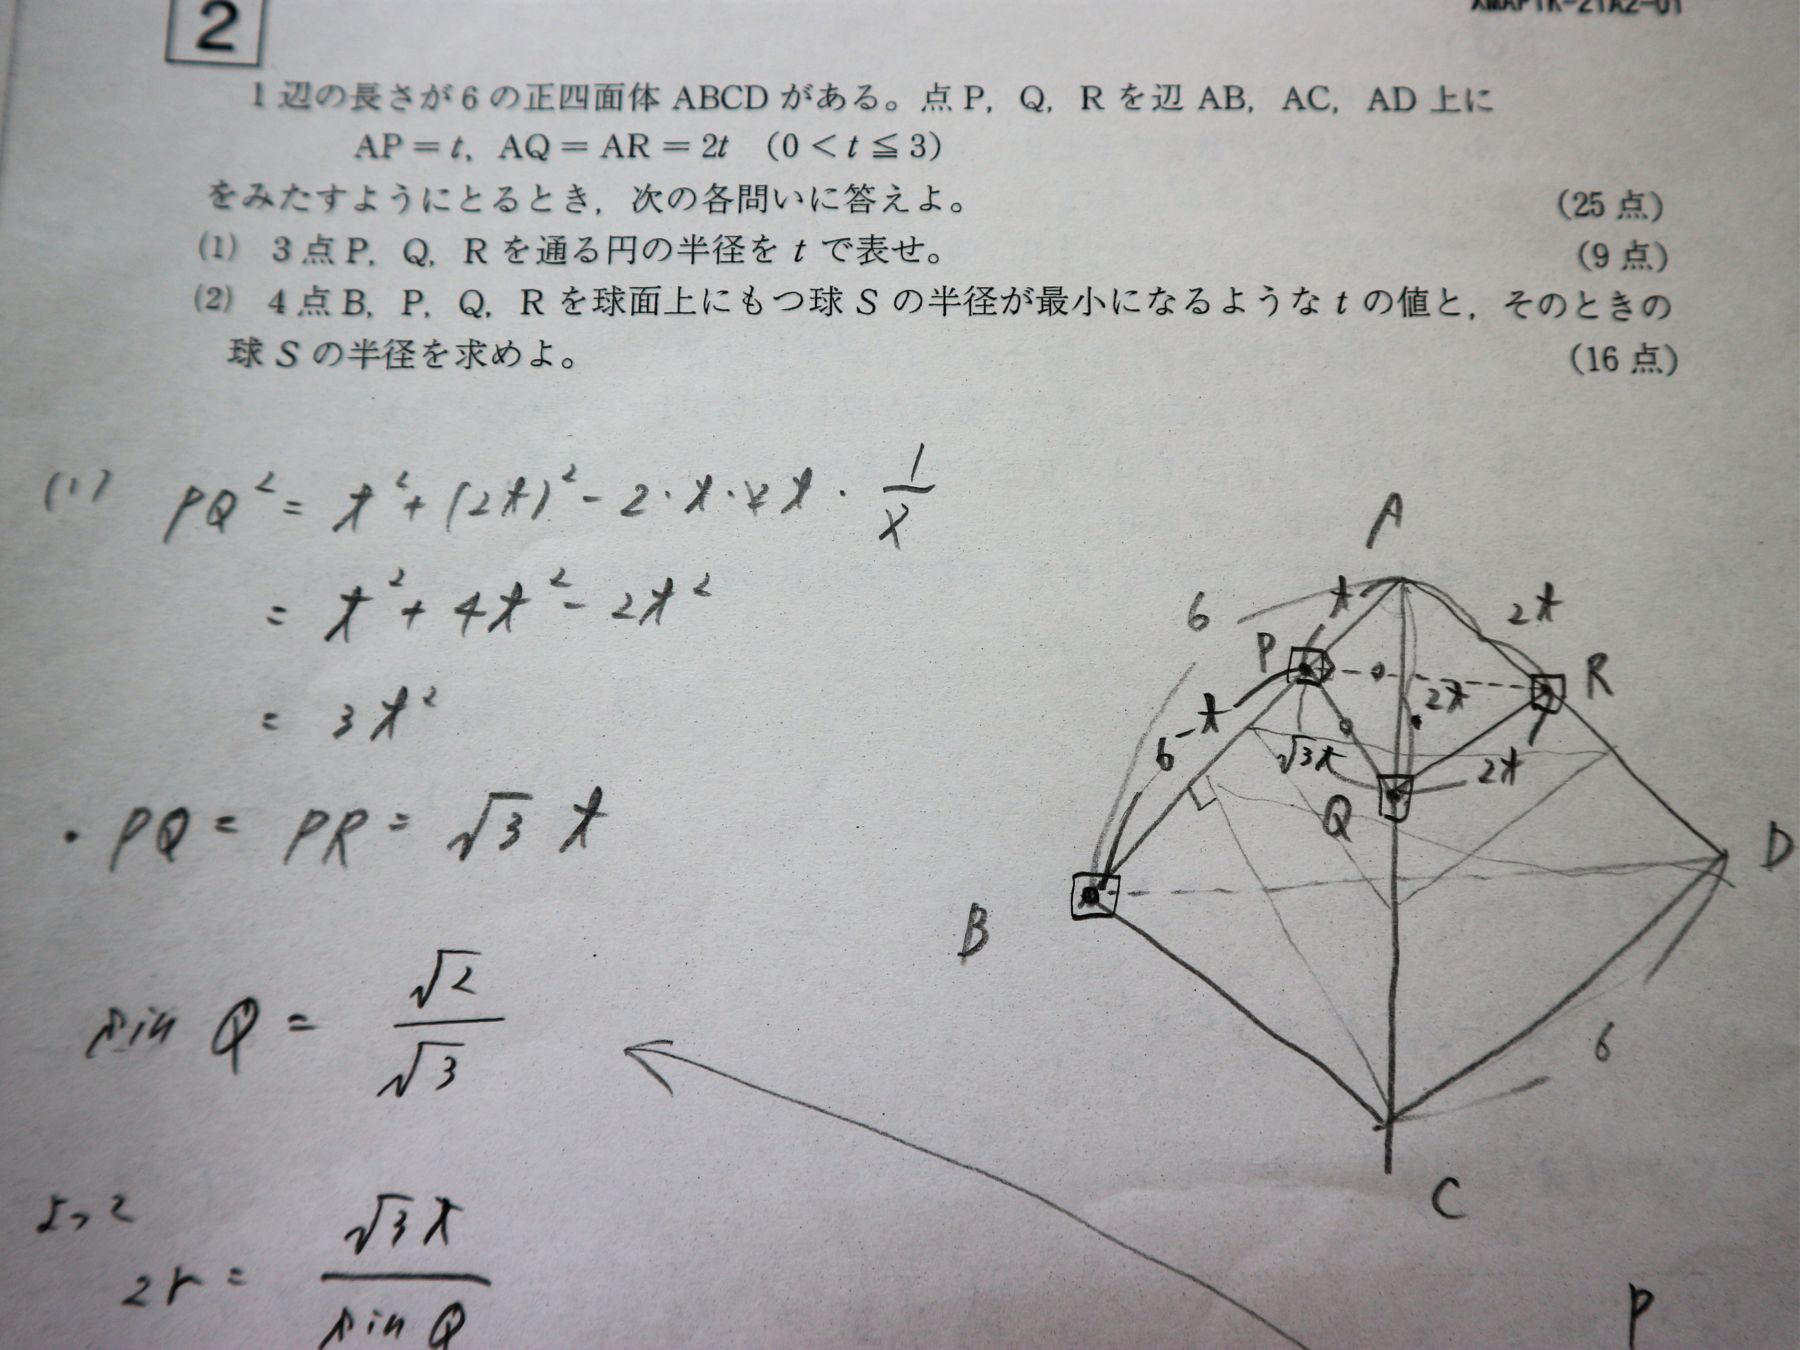 XMAP1K-21A2-01
2
1辺の長さが6の正四面体 ABCD がある。点 P, Q, R を辺 AB, AC, AD 上に
AP = t, AQ = AR = 2t (0 < t ≦ 3)
をみたすようにとるとき, 次の各問いに答えよ。 (25 点)
(1) 3点 P, Q, R を通る円の半径を t で表せ。 (9 点)
(2) 4点 B, P, Q, R を球面上にもつ球 S の半径が最小になるような t の値と, そのときの
球 S の半径を求めよ。 (16 点)
(1) PQ² = t² + (2t)² - 2・t・2t・1/2
= t² + 4t² - 2t²
= 3t²
・PQ = PR = √3 t
sin Q = √2/√3
よって
2r = √3 t / sin Q
A
6
t
2t
P
R
2t
6-t
√3t
2t
Q
B
D
6
C
P